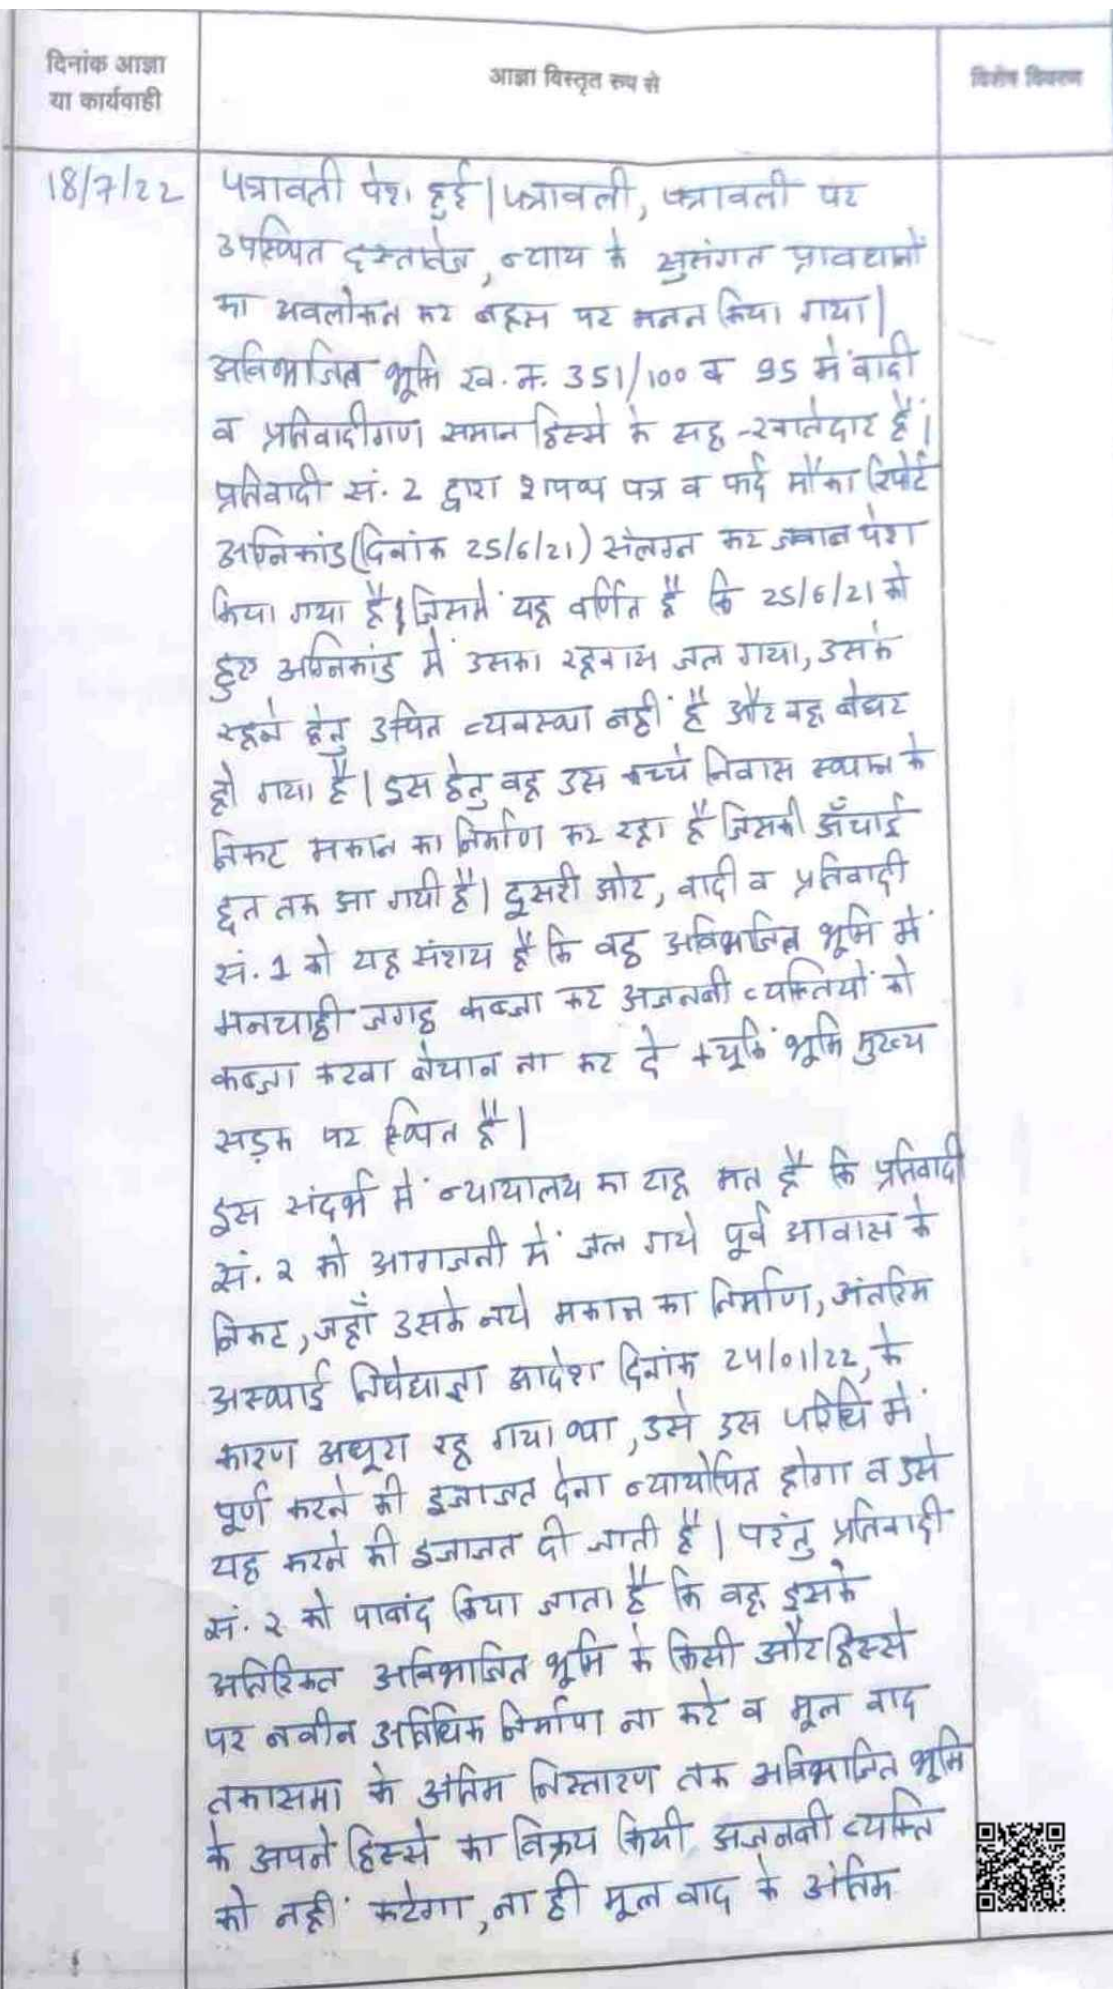 दिनांक आज्ञा
या कार्यवाही
आज्ञा विस्तृत रूप से
विशेष विवरण
18/7/22
पत्रावली पेश हुई। पत्रावली, पत्रावली पर
उपस्थित दस्तावेज, न्याय के सुसंगत प्रावधानों
का अवलोकन कर बहस पर मनन किया गया।
अविभाजित भूमि ख. नं. 351/100 व 95 में वादी
व प्रतिवादीगण समान हिस्से के सह-खातेदार हैं।
प्रतिवादी सं. 2 द्वारा शपथ पत्र व फर्द मौका रिपोर्ट
अग्निकांड (दिनांक 25/6/21) संलग्न कर जवाब पेश
किया गया है, जिसमें यह वर्णित है कि 25/6/21 को
हुए अग्निकांड में उसका रहवास जल गया, उसके
रहने हेतु उचित व्यवस्था नहीं है और वह बेघर
हो गया है। इस हेतु वह उस कच्चे निवास स्थान के
निकट मकान का निर्माण कर रहा है जिसकी ऊँचाई
छत तक आ गयी है। दूसरी ओर, वादी व प्रतिवादी
सं. 1 को यह संशय है कि वह अविभाजित भूमि में
मनचाही जगह कब्जा कर अजनबी व्यक्तियों को
कब्जा करवा बेचान ना कर दे क्यूंकि भूमि मुख्य
सड़क पर स्थित है।
इस संदर्भ में न्यायालय का यह मत है कि प्रतिवादी
सं. 2 को आगजनी में जल गये पूर्व आवास के
निकट, जहाँ उसके नये मकान का निर्माण, अंतरिम
अस्थाई निषेधाज्ञा आदेश दिनांक 24/01/22, के
कारण अधूरा रह गया था, उसे उस परिधि में
पूर्ण करने की इजाजत देना न्यायोचित होगा व उसे
यह करने की इजाजत दी जाती है। परंतु प्रतिवादी
सं. 2 को पाबंद किया जाता है कि वह इसके
अतिरिक्त अविभाजित भूमि के किसी और हिस्से
पर नवीन निर्माण ना करे व मूल वाद
तकासमा के अंतिम निस्तारण तक अविभाजित भूमि
के अपने हिस्से का विक्रय किसी अजनबी व्यक्ति
को नहीं करेगा, ना ही मूल वाद के अंतिम